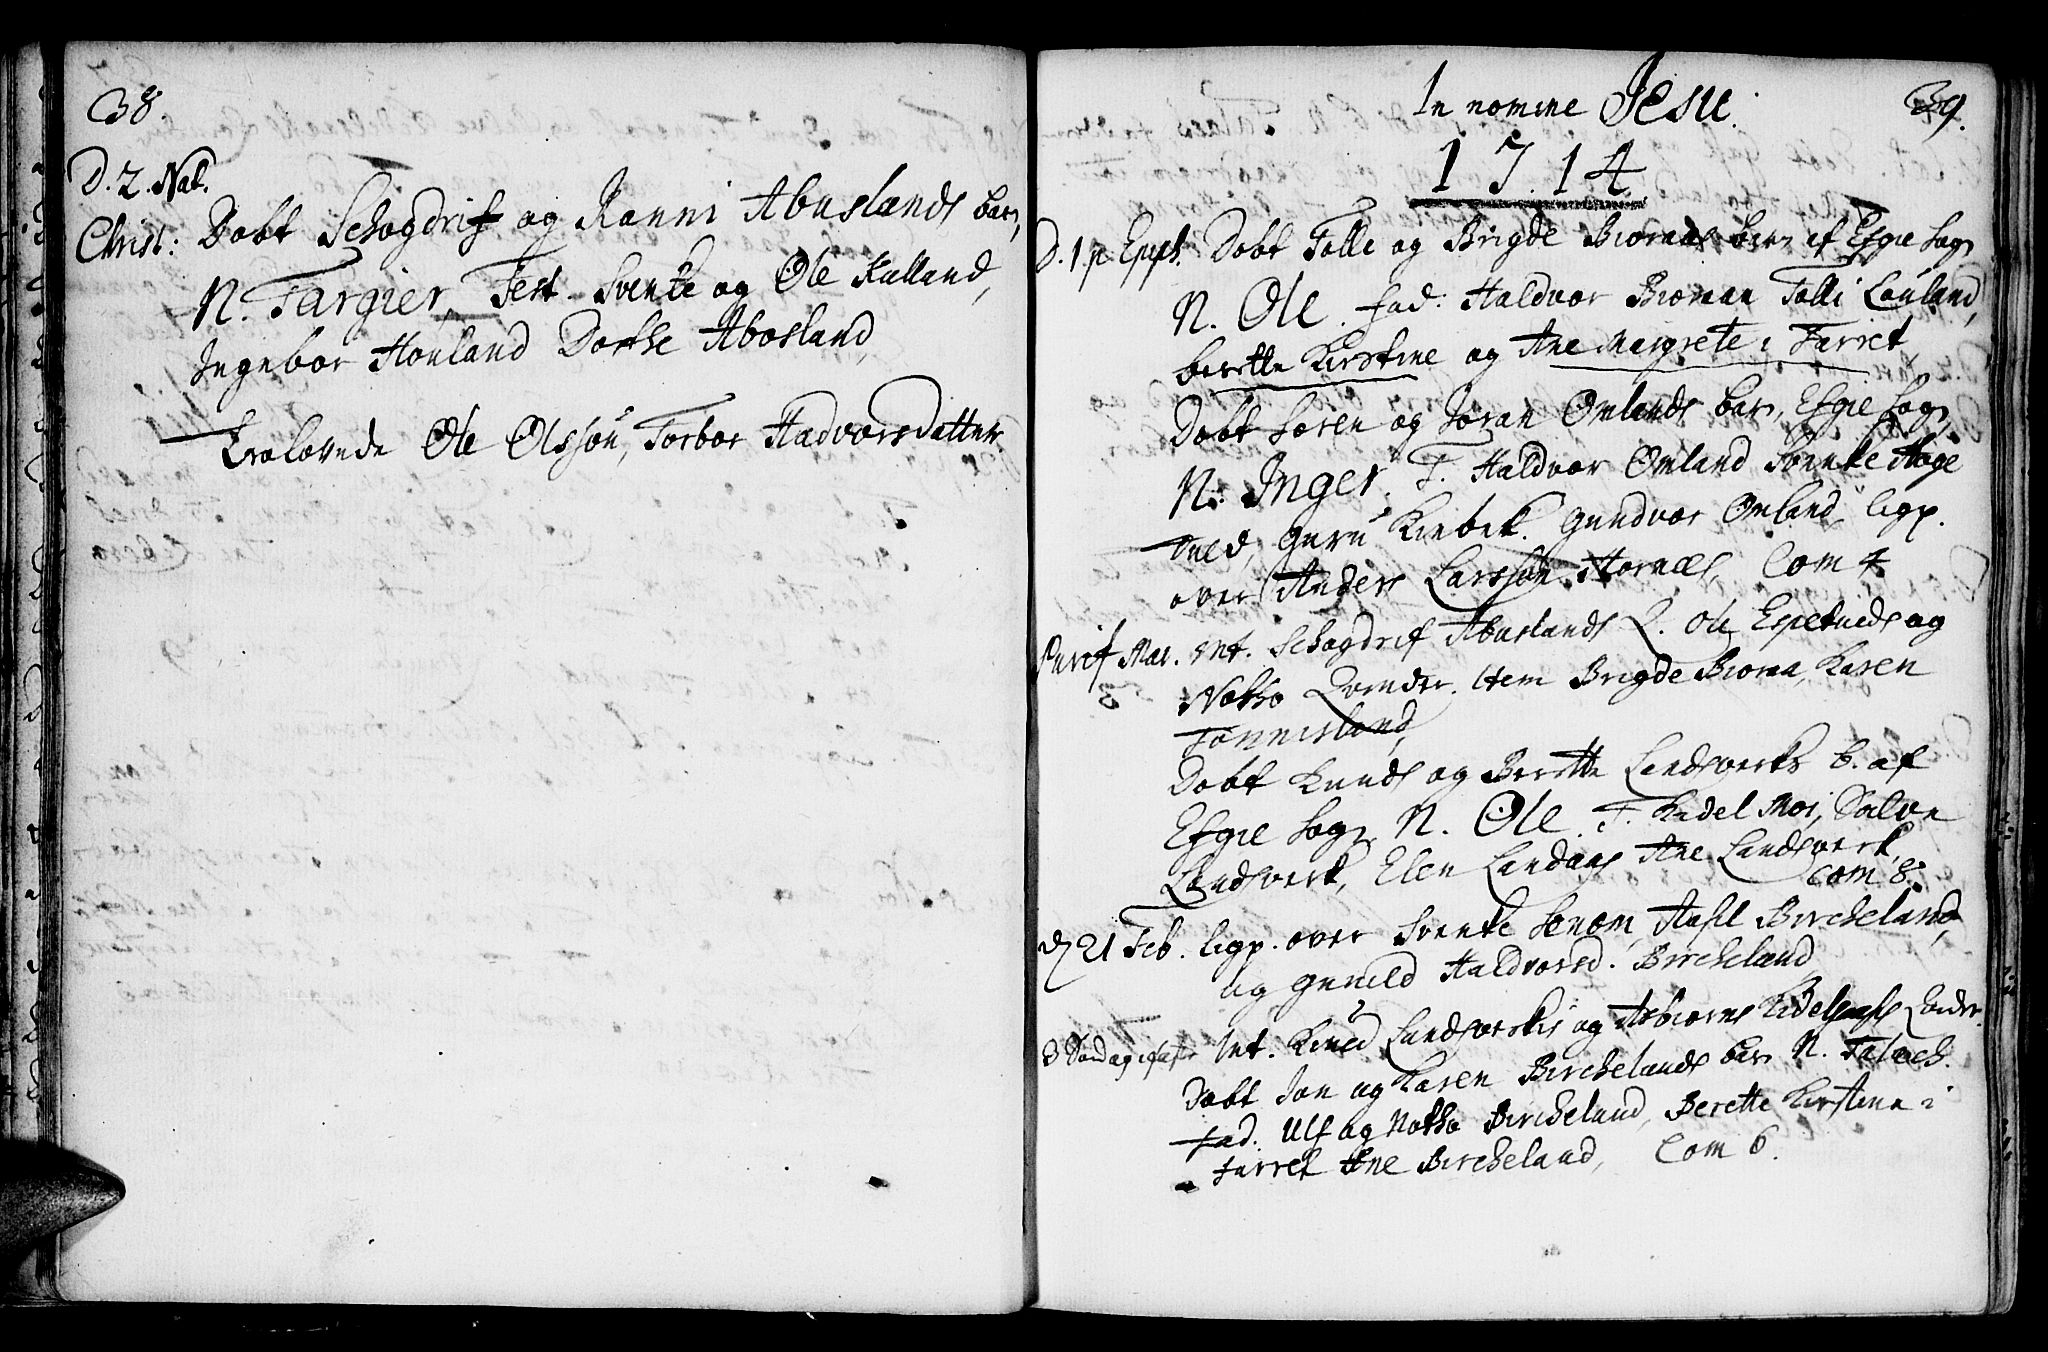 38.
D. 2. Nat.
Christ: Døbt Schogdrif og Ranni Abuslands barn,
N. Targier, Test. Svenke og Ole Kulland,
Ingebor Honland Dorthe Abosland,
Trolovede Ole Olssøn, Torbor Hadvorsdatter
In nomine Jesu.
39.
1714
D. 1. p. Epiph. Døbt Tolle og Brigde Bioraas barn af Efgie Sogn
N. Ole. fad: Haldvor Bioraan Tolli Lonland,
berette Kirstine og Ane Margrete i Farret,
Døbt Soren og Joran Omlands barn, Efgie Sogn,
N. Inger. T. Haldvor Omland Svenke Hage
tved, Guru Kirbek. Gundvor Omland, ligp.
over Anders Larssøn Hornæs, Com 4
Purif. Mar. Int. Schogdrif Abuslands Q. Ole Espetveds og
Notho Qvinder. Item Brigde Bioraa, Karen
Tonnisland,
Døbt Knuds og Berette Landsverks b. af
Efgie Sogn, N. Ole. T. Kidel Moi, Salve
Landsverk, Elen Landaas Ane Landsverk,
Com 8.
D 21 Feb. ligp. over Svenke Senom, Aasil Bircheland,
og Gunild Haldvorsd. Bircheland
3 Søndag i faste Int. Knud Landsverks og Asbiorns Kidelsaas Qvinder.
Døbt Jon og Karen Birchelands barn N. Talach.
fad. Ulf og Notho Bircheland, Berette Kirstine i
Farret Ane Bircheland, Com 6.